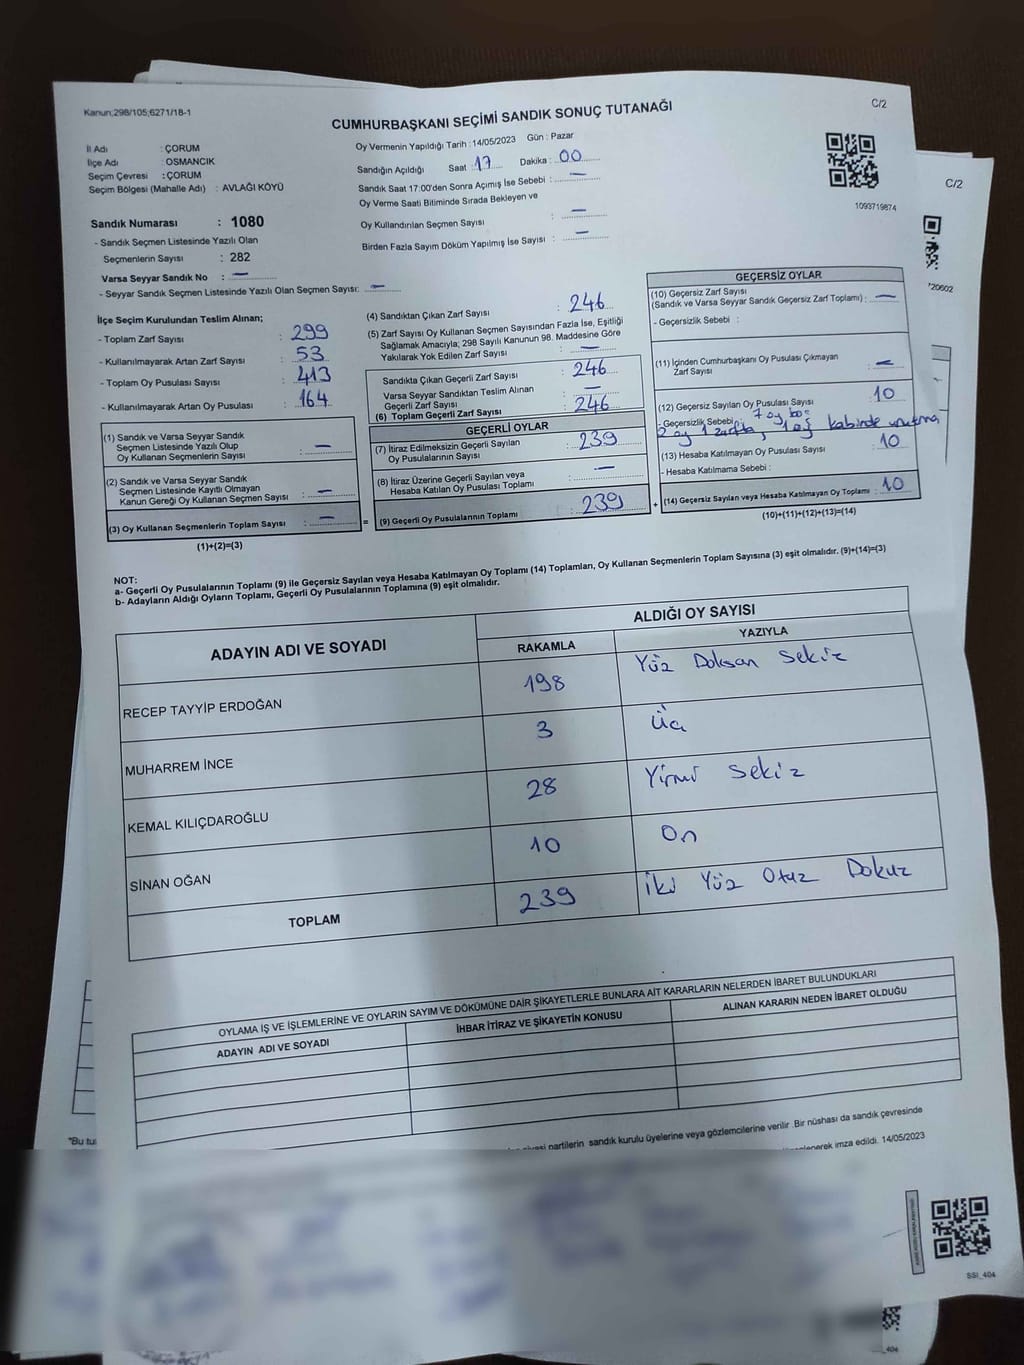 Kanun;298/105;6271/18-1
C/2
CUMHURBAŞKANI SEÇİMİ SANDIK SONUÇ TUTANAĞI
İl Adı : ÇORUM
İlçe Adı : OSMANCIK
Seçim Çevresi : ÇORUM
Seçim Bölgesi (Mahalle Adı) : AVLAĞI KÖYÜ
Sandık Numarası : 1080
- Sandık Seçmen Listesinde Yazılı Olan
Seçmenlerin Sayısı : 282
Varsa Seyyar Sandık No : —
- Seyyar Sandık Seçmen Listesinde Yazılı Olan Seçmen Sayısı: —
Oy Vermenin Yapıldığı Tarih : 14/05/2023 Gün : Pazar
Sandığın Açıldığı Saat : 17 Dakika : 00
Sandık Saat 17:00'den Sonra Açımış İse Sebebi : —
Oy Verme Saati Bitiminde Sırada Bekleyen ve
Oy Kullandırılan Seçmen Sayısı : —
Birden Fazla Sayım Döküm Yapılmış İse Sayısı : —
1093719874
İlçe Seçim Kurulundan Teslim Alınan;
- Toplam Zarf Sayısı : 299
- Kullanılmayarak Artan Zarf Sayısı : 53
- Toplam Oy Pusulası Sayısı : 413
- Kullanılmayarak Artan Oy Pusulası : 164
(1) Sandık ve Varsa Seyyar Sandık
Seçmen Listesinde Yazılı Olup
Oy Kullanan Seçmenlerin Sayısı : —
(2) Sandık ve Varsa Seyyar Sandık
Seçmen Listesinde Kayıtlı Olmayan
Kanun Gereği Oy Kullanan Seçmen Sayısı : —
(3) Oy Kullanan Seçmenlerin Toplam Sayısı : —
(1)+(2)=(3)
=
(4) Sandıktan Çıkan Zarf Sayısı : 246
(5) Zarf Sayısı Oy Kullanan Seçmen Sayısından Fazla İse, Eşitliği
Sağlamak Amacıyla; 298 Sayılı Kanunun 98. Maddesine Göre
Yakılarak Yok Edilen Zarf Sayısı : —
Sandıkta Çıkan Geçerli Zarf Sayısı : 246
Varsa Seyyar Sandıktan Teslim Alınan
Geçerli Zarf Sayısı : —
(6) Toplam Geçerli Zarf Sayısı : 246
GEÇERLİ OYLAR
(7) İtiraz Edilmeksizin Geçerli Sayılan
Oy Pusulalarının Sayısı : 239
(8) İtiraz Üzerine Geçerli Sayılan veya
Hesaba Katılan Oy Pusulası Toplamı : —
(9) Geçerli Oy Pusulalarının Toplamı : 239
+
GEÇERSİZ OYLAR
(10) Geçersiz Zarf Sayısı
(Sandık ve Varsa Seyyar Sandık Geçersiz Zarf Toplamı) : —
- Geçersizlik Sebebi :
(11) İçinden Cumhurbaşkanı Oy Pusulası Çıkmayan
Zarf Sayısı : —
(12) Geçersiz Sayılan Oy Pusulası Sayısı : 10
- Geçersizlik Sebebi : 7 oy boş
2 oy 1 zarfta, 1 oy kabinde unutma
(13) Hesaba Katılmayan Oy Pusulası Sayısı : 10
- Hesaba Katılmama Sebebi :
(14) Geçersiz Sayılan veya Hesaba Katılmayan Oy Toplamı : 10
(10)+(11)+(12)+(13)=(14)
NOT:
a- Geçerli Oy Pusulalarının Toplamı (9) ile Geçersiz Sayılan veya Hesaba Katılmayan Oy Toplamı (14) Toplamları, Oy Kullanan Seçmenlerin Toplam Sayısına (3) eşit olmalıdır. (9)+(14)=(3)
b- Adayların Aldığı Oyların Toplamı, Geçerli Oy Pusulalarının Toplamına (9) eşit olmalıdır.
ADAYIN ADI VE SOYADI
ALDIĞI OY SAYISI
RAKAMLA YAZIYLA
RECEP TAYYİP ERDOĞAN 198 Yüz Doksan Sekiz
MUHARREM İNCE 3 Üç
KEMAL KILIÇDAROĞLU 28 Yirmi Sekiz
SİNAN OĞAN 10 On
TOPLAM 239 İki Yüz Otuz Dokuz
OYLAMA İŞ VE İŞLEMLERİNE VE OYLARIN SAYIM VE DÖKÜMÜNE DAİR ŞİKAYETLERLE BUNLARA AİT KARARLARIN NELERDEN İBARET BULUNDUKLARI
ADAYIN ADI VE SOYADI
İHBAR İTİRAZ VE ŞİKAYETİN KONUSU
ALINAN KARARIN NEDEN İBARET OLDUĞU
partilerin sandık kurulu üyelerine veya gözlemcilerine verilir .Bir nüshası da sandık çevresinde
imza edildi. 14/05/2023
SSI_404
C/2
*Bu